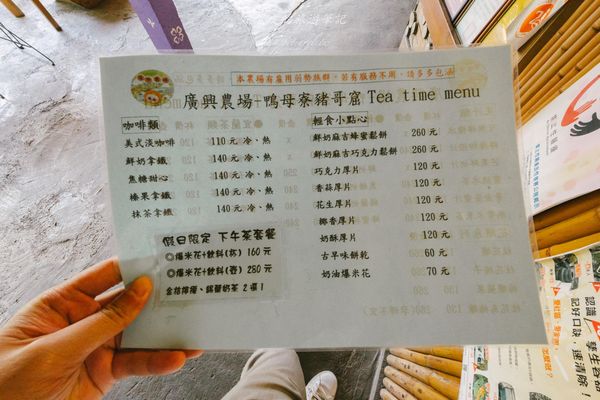 本農場有雇用弱勢族群，若有服務不周，請多多包涵
廣興農場+鴨母寮豬哥窟 Tea time menu
咖啡類
美式淡咖啡 110元 冷、熱
鮮奶拿鐵 140元 冷、熱
焦糖甜心 140元 冷、熱
榛果拿鐵 140元 冷、熱
抹茶拿鐵 140元 冷、熱
假日限定 下午茶套餐
◎爆米花+飲料(杯) 160元
◎爆米花+飲料(壺) 280元
金桔檸檬、錫蘭奶茶 2選1
輕食小點心
鮮奶麻吉蜂蜜鬆餅 260元
鮮奶麻吉巧克力鬆餅 260元
巧克力厚片 120元
香蒜厚片 120元
花生厚片 120元
椰香厚片 120元
奶酥厚片 120元
古早味餅乾 60元
奶油爆米花 70元
認識
孳生容器
記好口訣，速清除！